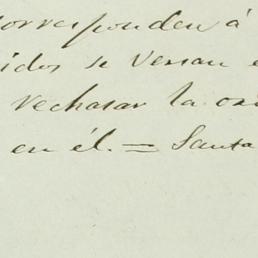 corresponden á
idos se versan e
rechasar la ori
en él. = Santa